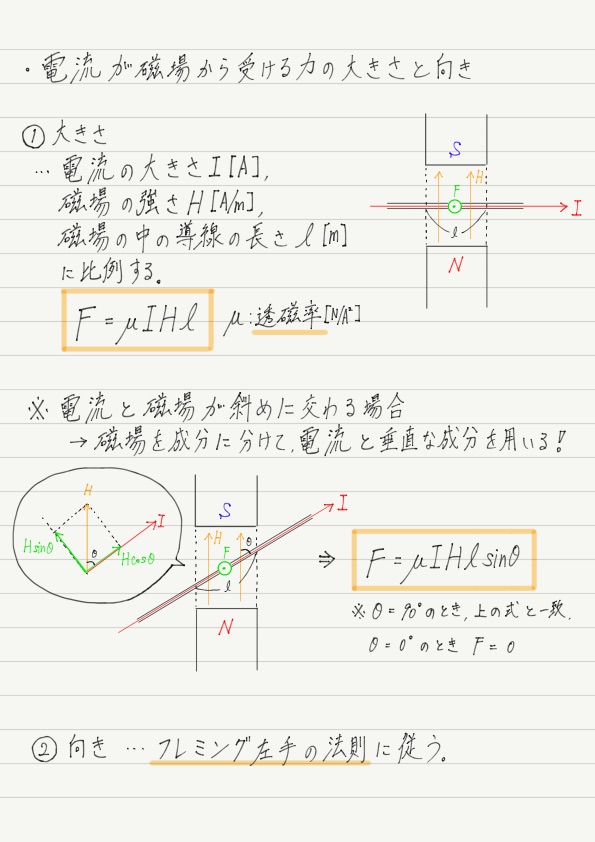 ・電流が磁場から受ける力の大きさと向き
① 大きさ
… 電流の大きさ I [A],
磁場の強さ H [A/m],
磁場の中の導線の長さ l [m]
に比例する。
F = μIHl
μ:透磁率[N/A²]
S
H
F
I
l
N
※ 電流と磁場が斜めに交わる場合
→ 磁場を成分に分けて、電流と垂直な成分を用いる!
H
I
Hsinθ
θ
Hcosθ
S
I
H
θ
F
l
N
⇒ F = μIHl sinθ
※ θ = 90°のとき, 上の式と一致.
θ = 0°のとき F = 0
② 向き … フレミング左手の法則に従う。